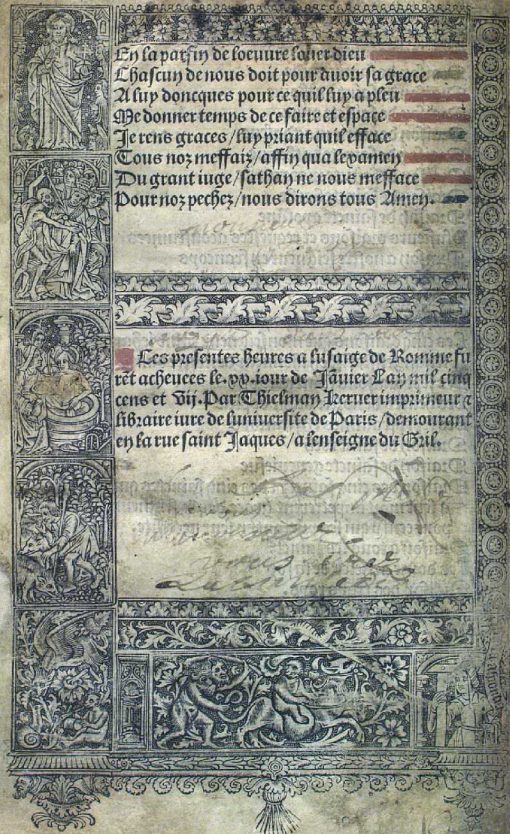 En la parfin de loeuure louer dieu
Chascun de nous doit pour auoir sa grace
A luy doncques pour ce quil luy a pleu
Me donner temps de ce faire et espace
Je rens graces / luy priant quil efface
Tous noz meffaiz / affin qua le yamen
Du grant iuge / sathan ne nous mefface
Pour noz pechez / nous dirons tous Amen.
Les presentes heures a lusaige de Romme fu
rēt acheuees le .xx. iour de Januier Lan mil cinq
cens et vij. Par Thielman Keruer imprimeur ⁊
libraire iure de luniuersite de Paris / demourant
en la rue saint Jaques / a lenseigne du Gril.
vous